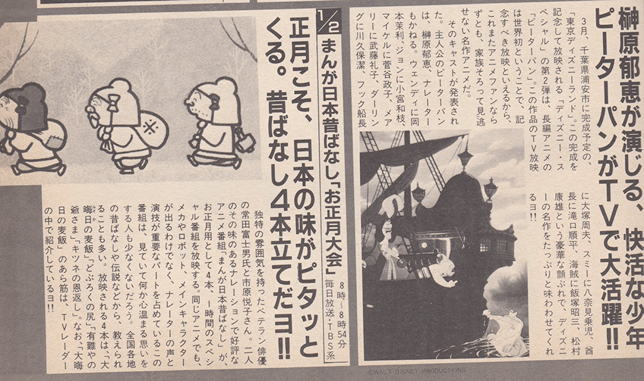 榊原郁恵が演じる、快活な少年
ピーターパンがTVで大活躍!!
3月、千葉県浦安市に完成予定の、
「東京ディズニーランド」。この完成を
記念して放映される「ディズニース
ペシャル」の第2弾は、長編アニメの
「ピーターパン」。この作品のTV放映
は世界初ということで、記
念すべき放映といえるから、
これまたアニメファンなら
ずとも、家族そろって見逃
せない名作アニメだ。
そのキャストが発表され
た。主人公のピーターパン
は、榊原郁恵、ナレーター
もかねる。ウェンディに岡
本茉利、ジョンに小宮和枝、
マイケルに菅谷政子、メア
リーに武藤礼子、ダーリン
グに川久保潔、フック船長
に大塚周夫、スミーに八奈見乗児、酋
長に滝口順平、海賊に飯塚昭三、松村
康雄という豪華な顔ぶれで、ディズニ
ーの名作をたっぷりと味わわせてくれ
るヨ!!
©WALT DISNEY PRODUCTIONS
1/2
まんが日本昔ばなし「お正月大会」
8時〜8時54分
毎日放送・TBS系
正月こそ、日本の味がピタッと
くる。昔ばなし4本立てだヨ!!
独特の雰囲気を持ったベテラン俳優
の常田富士男氏と市原悦子さん。二人
のその味のあるナレーションで好評な
アニメ番組「まんが日本昔ばなし」が、
お正月用として4本、一時間のスペシ
ャル番組を放映する。同じアニメでも、
メカやロボット、メインキャラクター
が出るわけでなく、ナレーターの声と
演技が重要なパートを占めているこの
番組は、見ていて何か心温まる思いを
する人も少なくないだろう。全国各地
の昔ばなしや伝説などから、教えられ
ることも多い。放映される4本は、「大
晦日の麦飯」「どぶろくの尻」「有難やの
爺さま」「キツネの恩返し」。なお、「大晦
日の麦飯」のあら筋は、TVレーダー
の中で紹介しているヨ!!